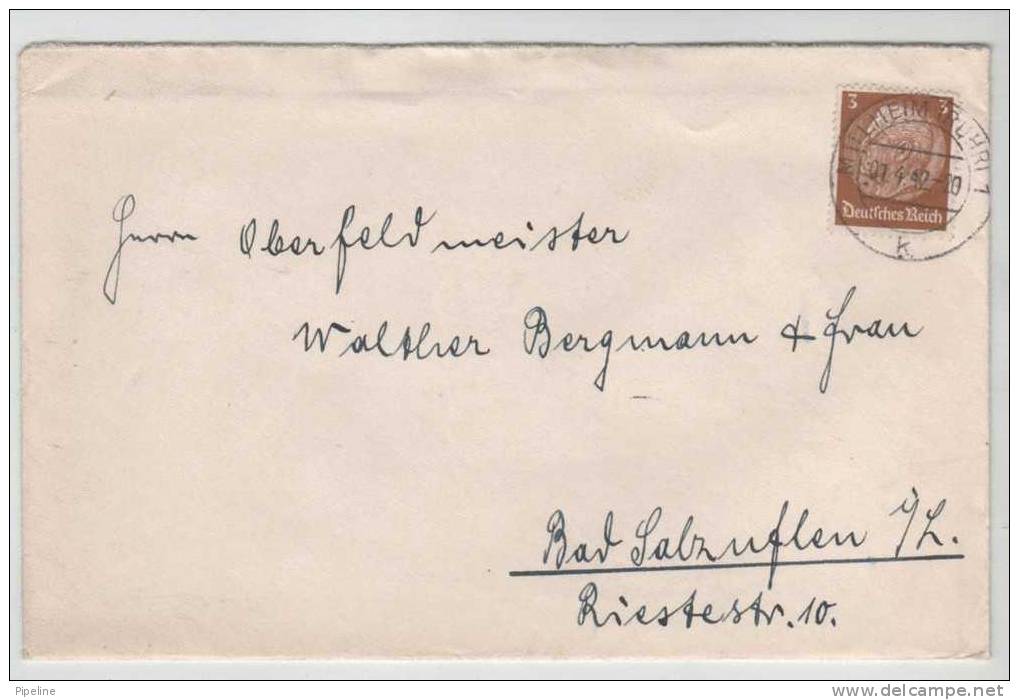 3 3
MÜLHEIM (RUHR) 1
01.4.42-20
Deutsches Reich
k
Herrn Oberfeldmeister
Walther Bergmann & Frau
Bad Salzuflen i/L.
Riestestr. 10.
Pipeline
www.delcampe.net